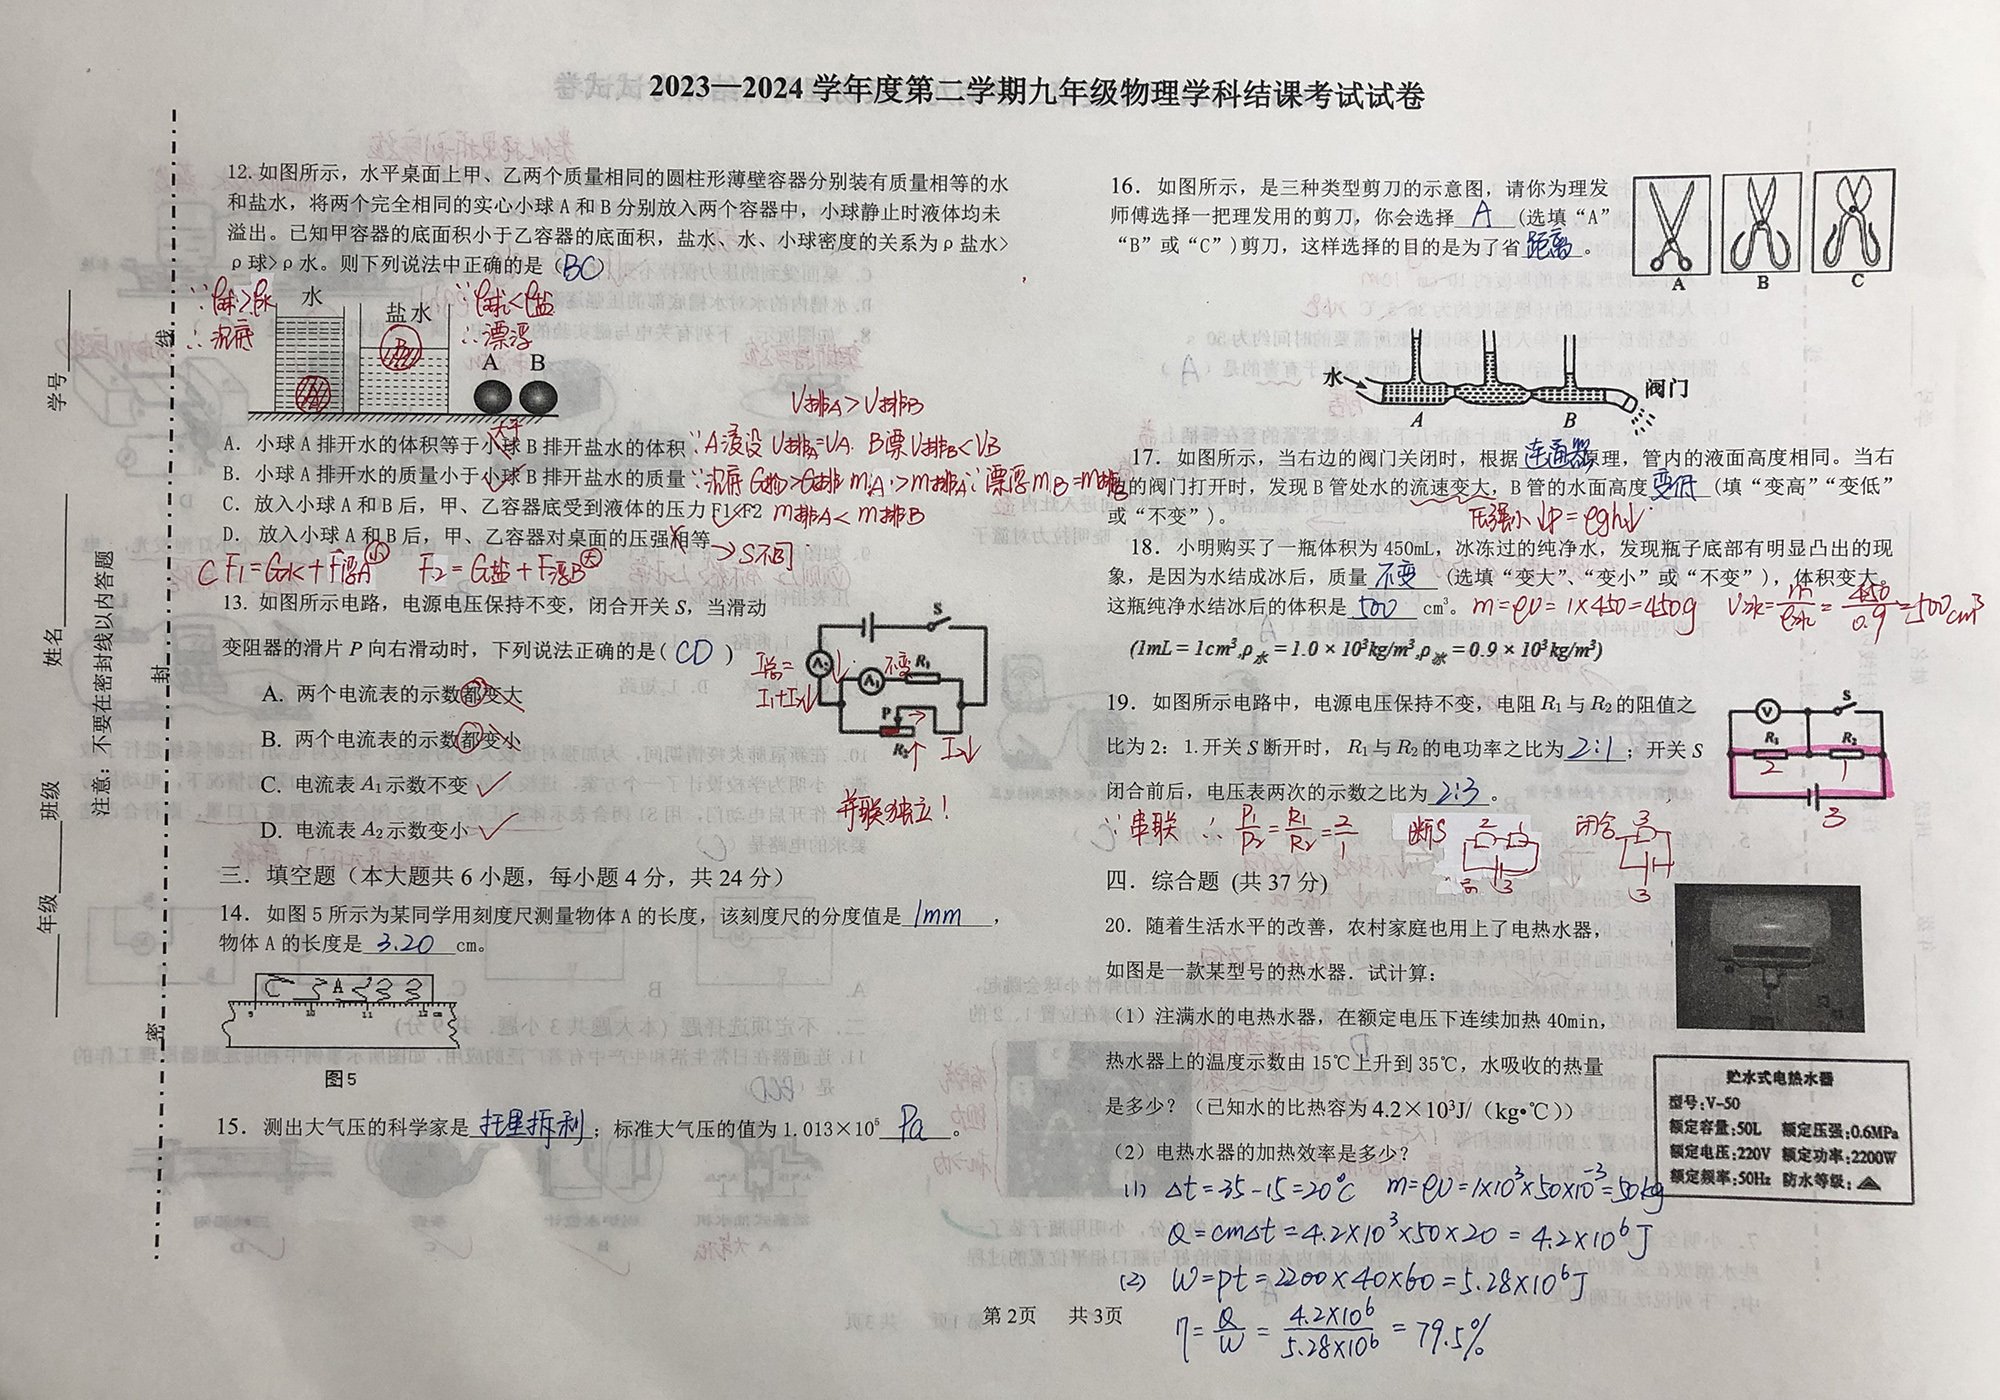 2023—2024 学年度第二学期九年级物理学科结课考试试卷
学号
姓名
班级
年级
注意：不要在密封线以内答题
线
封
密
12. 如图所示，水平桌面上甲、乙两个质量相同的圆柱形薄壁容器分别装有质量相等的水
和盐水，将两个完全相同的实心小球 A 和 B 分别放入两个容器中，小球静止时液体均未
溢出。已知甲容器的底面积小于乙容器的底面积，盐水、水、小球密度的关系为 ρ 盐水>
ρ 球>ρ 水。则下列说法中正确的是（BC）
∵ρ球>ρ水
∴沉底
水
盐水
∵ρ球<ρ盐
∴漂浮
A
B
A B
V排A>V排B
大于
A. 小球 A 排开水的体积等于小球 B 排开盐水的体积 ∵A浸没 V排A=VA. B漂 V排B<VB
B. 小球 A 排开水的质量小于小球 B 排开盐水的质量 ∵沉底 G物>G排 mA>m排A ∵漂浮 mB=m排B
C. 放入小球 A 和 B 后，甲、乙容器底受到液体的压力 F1<F2 m排A<m排B
D. 放入小球 A 和 B 后，甲、乙容器对桌面的压强相等 → S不同
C F1=G水+F浮A 小 F2=G盐+F浮B 大
13. 如图所示电路，电源电压保持不变，闭合开关 S，当滑动
变阻器的滑片 P 向右滑动时，下列说法正确的是( CD )
A. 两个电流表的示数都变大
B. 两个电流表的示数都变小
C. 电流表 A₁ 示数不变 ✓
D. 电流表 A₂ 示数变小 ✓
S
I总=
I1+I2↓
A₂ ↓
不变 R₁
A₁
P →
R₂ ↑ I2↓
并联独立！
三．填空题（本大题共 6 小题，每小题 4 分，共 24 分）
14. 如图 5 所示为某同学用刻度尺测量物体 A 的长度，该刻度尺的分度值是 1mm ，
物体 A 的长度是 3.20 cm。
A
9 10 11 12 cm
图 5
15. 测出大气压的科学家是 托里拆利 ；标准大气压的值为 1.013×10⁵ Pa 。
16. 如图所示，是三种类型剪刀的示意图，请你为理发
师傅选择一把理发用的剪刀，你会选择 A (选填“A”
“B”或“C”)剪刀，这样选择的目的是为了省 距离 。
A B C
水
阀门
A B
17. 如图所示，当右边的阀门关闭时，根据 连通器 原理，管内的液面高度相同。当右
边的阀门打开时，发现 B 管处水的流速变大，B 管的水面高度 变低 (填“变高”“变低”
或“不变”)。
压强小 ↓P=ρgh↓
18. 小明购买了一瓶体积为 450mL，冰冻过的纯净水，发现瓶子底部有明显凸出的现
象，是因为水结成冰后，质量 不变 (选填“变大”、“变小”或“不变”)，体积变大。
这瓶纯净水结冰后的体积是 500 cm³。 m=ρV=1×450=450g V冰=m/ρ冰=450/0.9=500cm³
(1mL＝1cm³,ρ水＝1.0×10³kg/m³,ρ冰＝0.9×10³kg/m³)
19. 如图所示电路中，电源电压保持不变，电阻 R₁ 与 R₂ 的阻值之
比为 2：1.开关 S 断开时， R₁ 与 R₂ 的电功率之比为 2:1 ；开关 S
闭合前后，电压表两次的示数之比为 2:3 。
V S
R₁ R₂
2 1
3
∵串联 ∴P1/P2=R1/R2=2/1
断S 2 1
3
闭合 3
3
四．综合题 (共 37 分)
20. 随着生活水平的改善，农村家庭也用上了电热水器，
如图是一款某型号的热水器．试计算：
（1）注满水的电热水器，在额定电压下连续加热 40min，
热水器上的温度示数由 15℃上升到 35℃，水吸收的热量
是多少？（已知水的比热容为 4.2×10³J/（kg•℃））
（2）电热水器的加热效率是多少？
贮水式电热水器
型号:V-50
额定容量:50L 额定压强:0.6MPa
额定电压:220V 额定功率:2200W
额定频率:50Hz 防水等级:
(1) Δt=35-15=20℃ m=ρV=1×10³×50×10⁻³=50kg
Q=cmΔt=4.2×10³×50×20=4.2×10⁶J
(2) W=Pt=2200×40×60=5.28×10⁶J
η=Q/W=4.2×10⁶/5.28×10⁶=79.5%
第 2页 共 3页